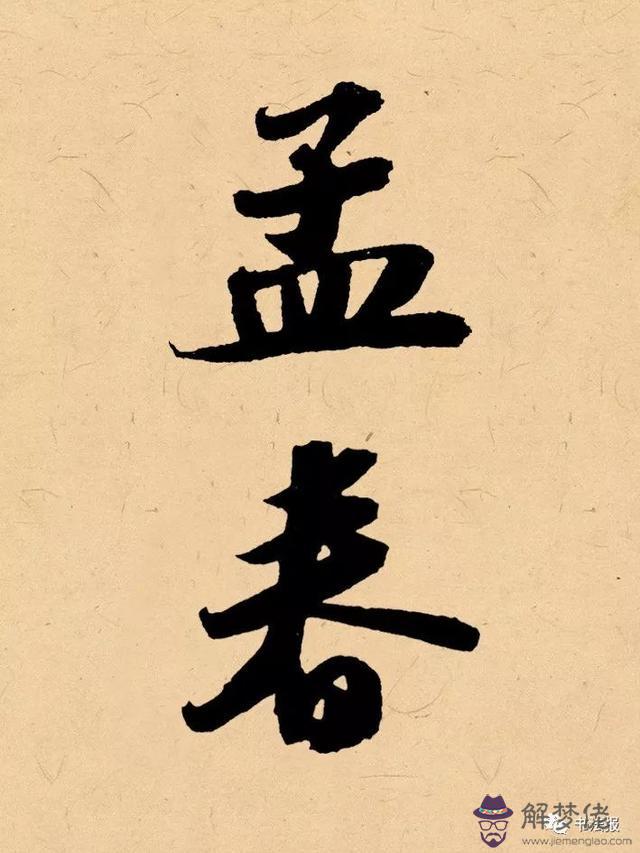 孟
春
解梦佬
www.jiemengliao.com
书法报